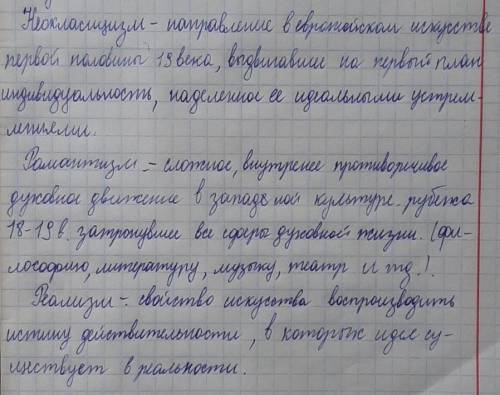 Неокласицизм – направление в европейском искусстве
первой половины 19 века, выдвигавшие на первый план
индивидуальность, наделенное ее идеальными устрем-
лениями.
Романтизм – сложное, внутренее противоречивое
духовное движение в западной культуре рубежа
18-19 в. затронувшее все сферы духовной жизни. (фи-
лософию, литературу, музыку, театр и тд.).
Реализм – свойство искусства воспроизводить
истину действительности, в которых идее су-
ществует в реальности.